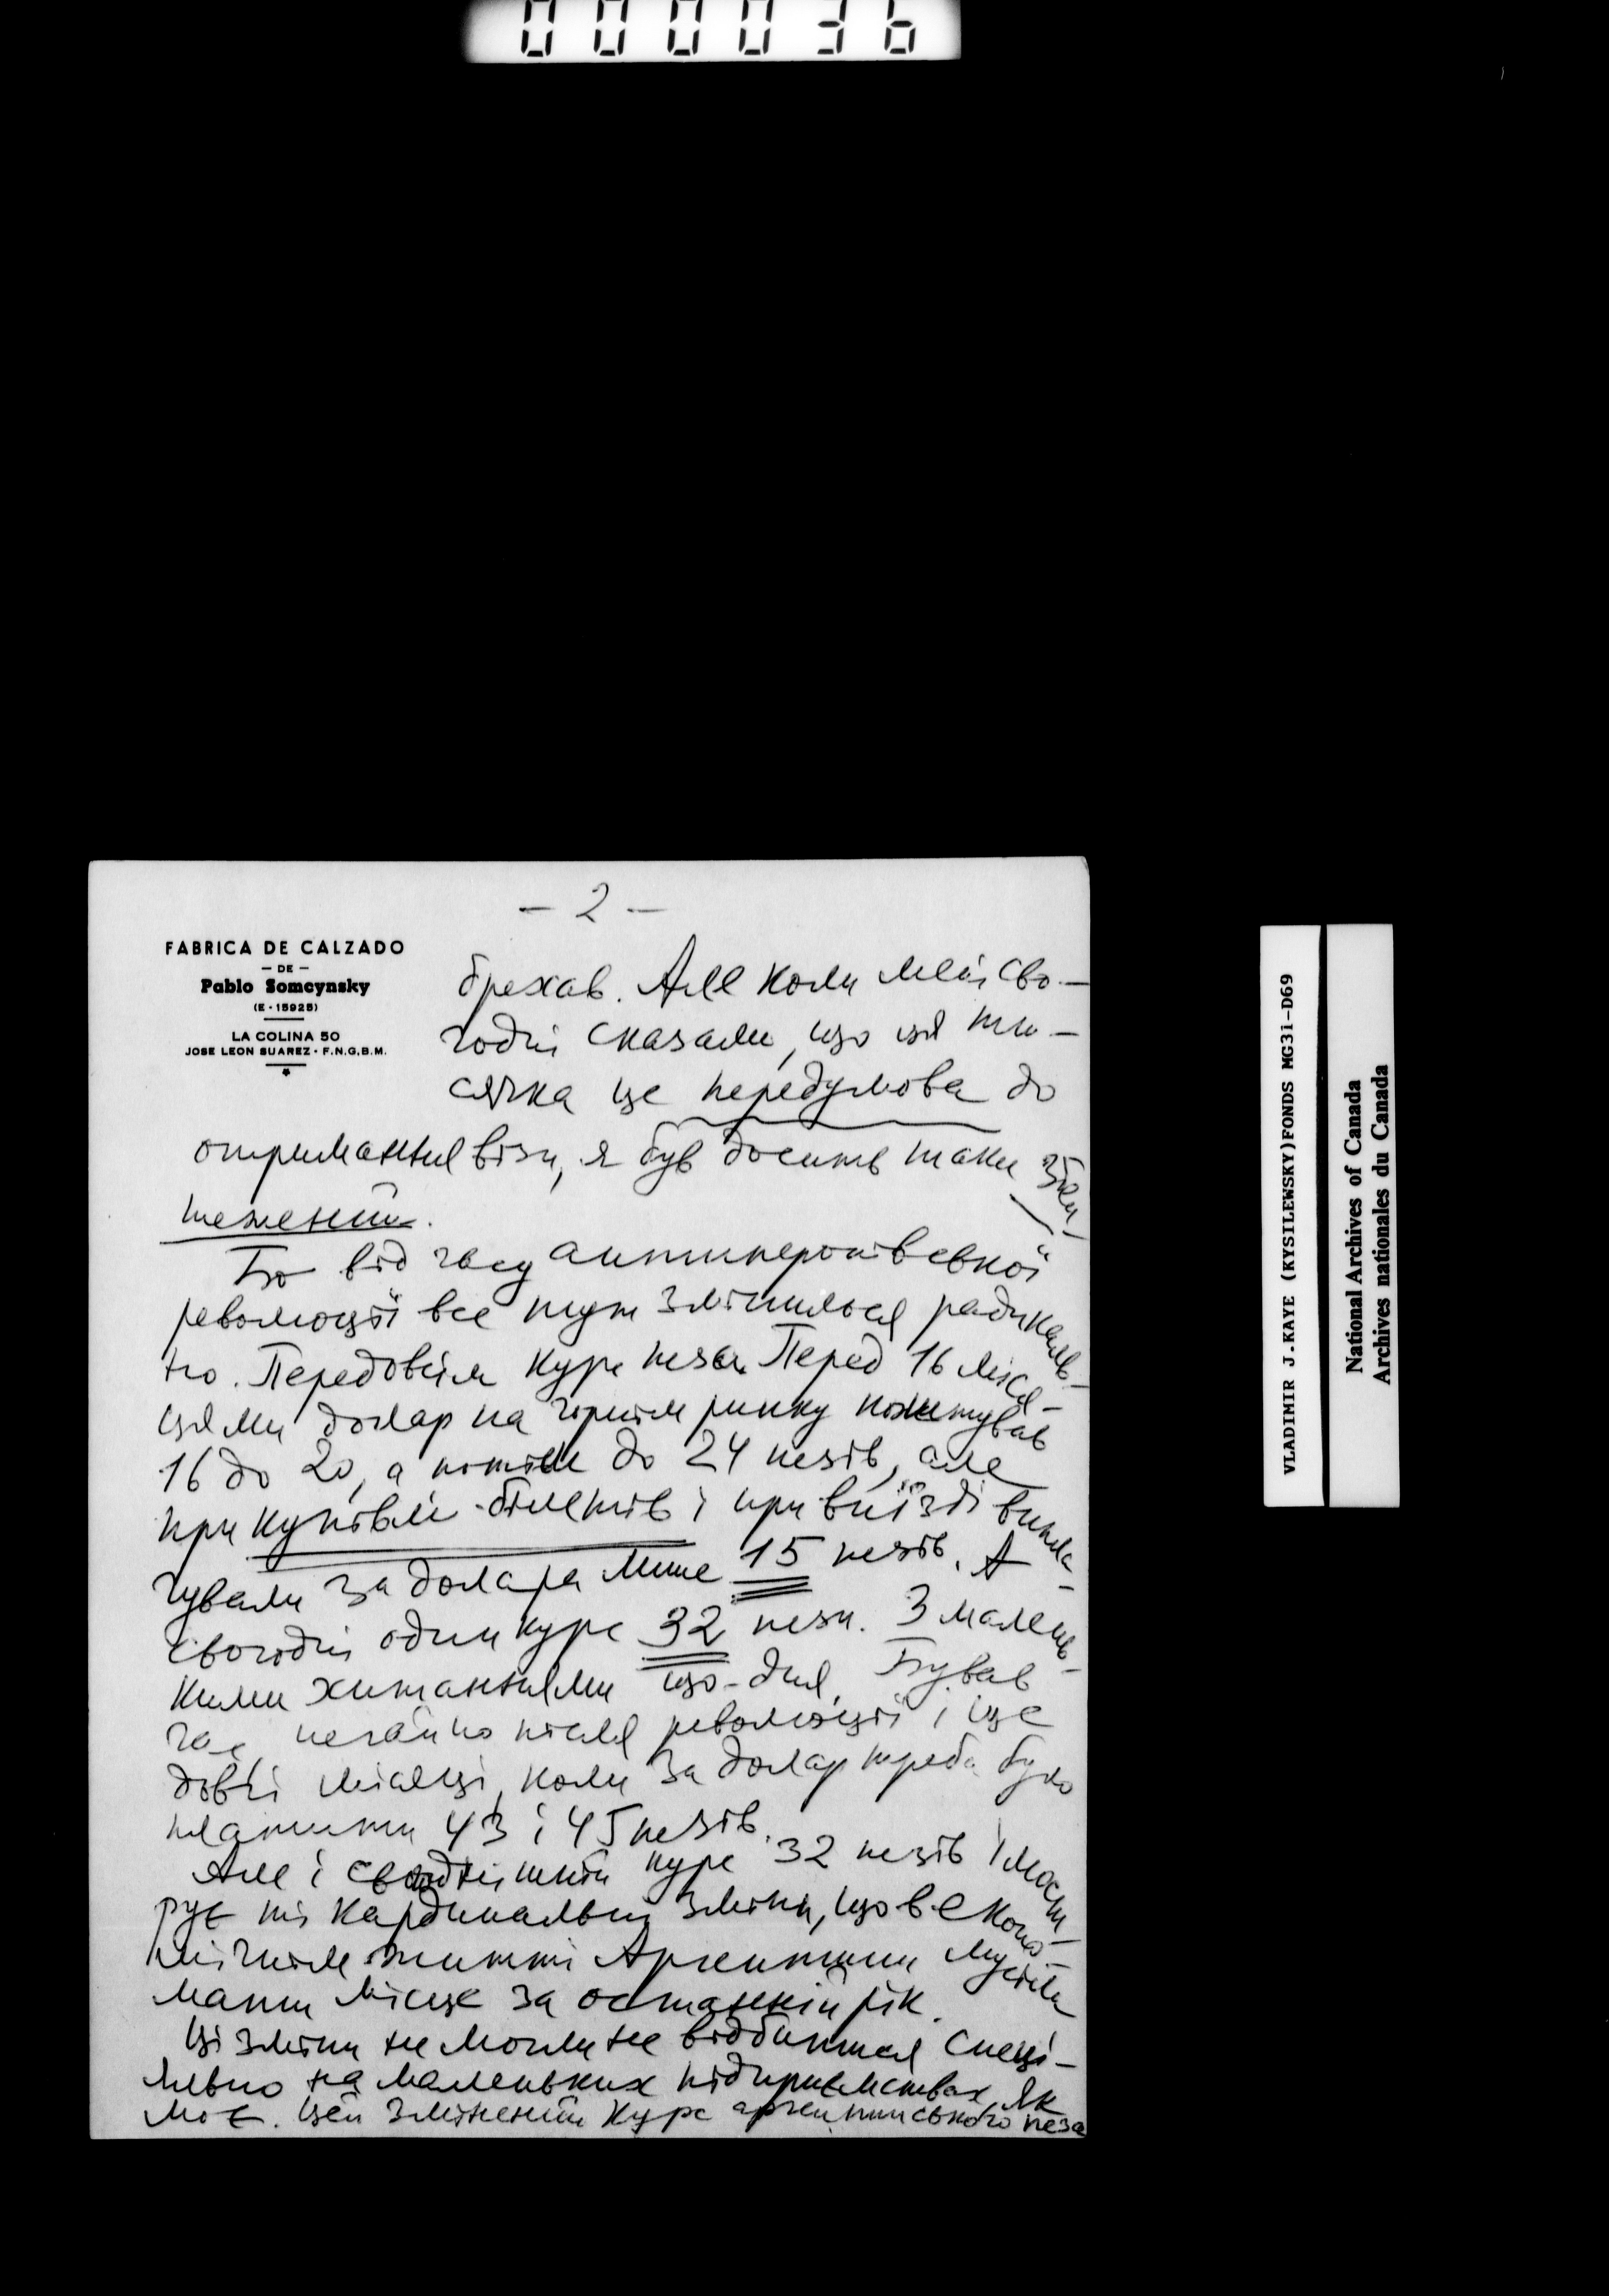 000036
- 2 -
FABRICA DE CALZADO
— DE —
Pablo Somcynsky
(E - 15925)
LA COLINA 50
JOSE LEON SUAREZ - F.N.G.B.M.
брехав. Але коли мені сво-
годні сказали, що ця ти-
сячка це передумова до
отримання візи, я був досить таки зби-
тежений.
Бо від часу антиперонівської
революції все тут змінилося радикаль-
но. Передовсім курс пеза. Перед 16 міся-
цями долар на чорнім ринку коштував
16 до 20, а потім до 24 пезів, але
при купівлі білетів і при виїзді випла-
чували за долара лише 15 пезів. А
сьогодні один курс 32 пези. З малень-
кими хитаннями що-дня. Бував
час негайно після революції і ще
довгі місяці, коли за долар треба було
платити 43 і 45 пезів.
Але і сьогоднішній курс 32 пезів ілюст-
рує ті кардинальні зміни, що в еконо-
мічнім житті Аргентини мусіли
мати місце за останній рік.
Ці зміни не могли не відбитися спеці-
яльно на маленьких підприємствах, як
моє. Цей змінений курс аргентинського пеза
VLADIMIR J.KAYE (KYSILEWSKY)FONDS MG31-D69
National Archives of Canada
Archives nationales du Canada